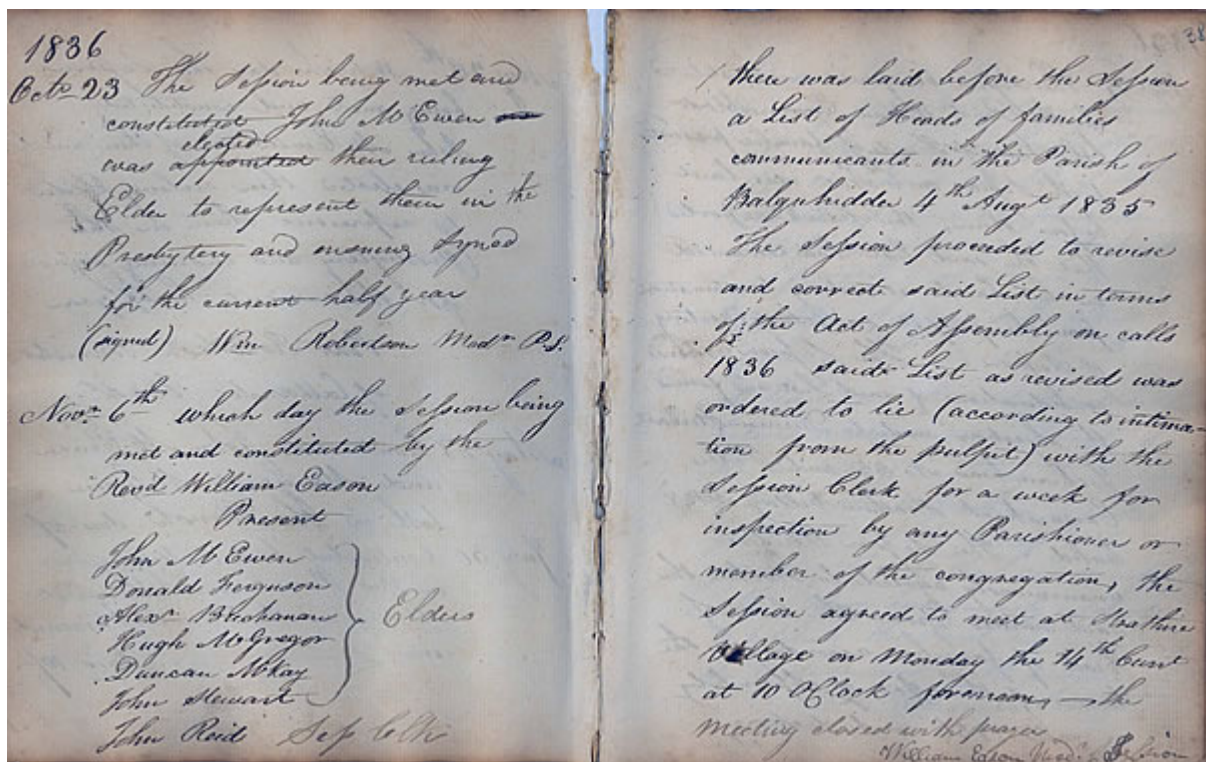 1836
Octr 23 The Session being met and
constituted John McEwen
elected
was appointed their ruling
Elder to represent them in the
Presbytery and ensuing Synod
for the current half year
(signed) Wm Robertson Modr P.S.
Novr 6th which day the Session being
met and constituted by the
Revd William Eason
Present
John McEwen
Donald Ferguson
Alexr Buchanan
Hugh McGregor
Duncan McKay
John Stewart
Elders
John Reid Sess Clk
38
there was laid before the Session
a List of Heads of families
communicants in the Parish of
Balquhidder 4th Augt 1835
The Session proceeded to revise
and correct said List in terms
of the Act of Assembly on calls
1836 said List as revised was
ordered to lie (according to intima-
tion from the pulpit) with the
Session Clerk for a week for
inspection by any Parishioner or
member of the congregation, the
Session agreed to meet at Strathire
Village on Monday the 14th Curnt
at 10 OClock forenoon, — the
meeting closed with prayer
William Eason Modr Session